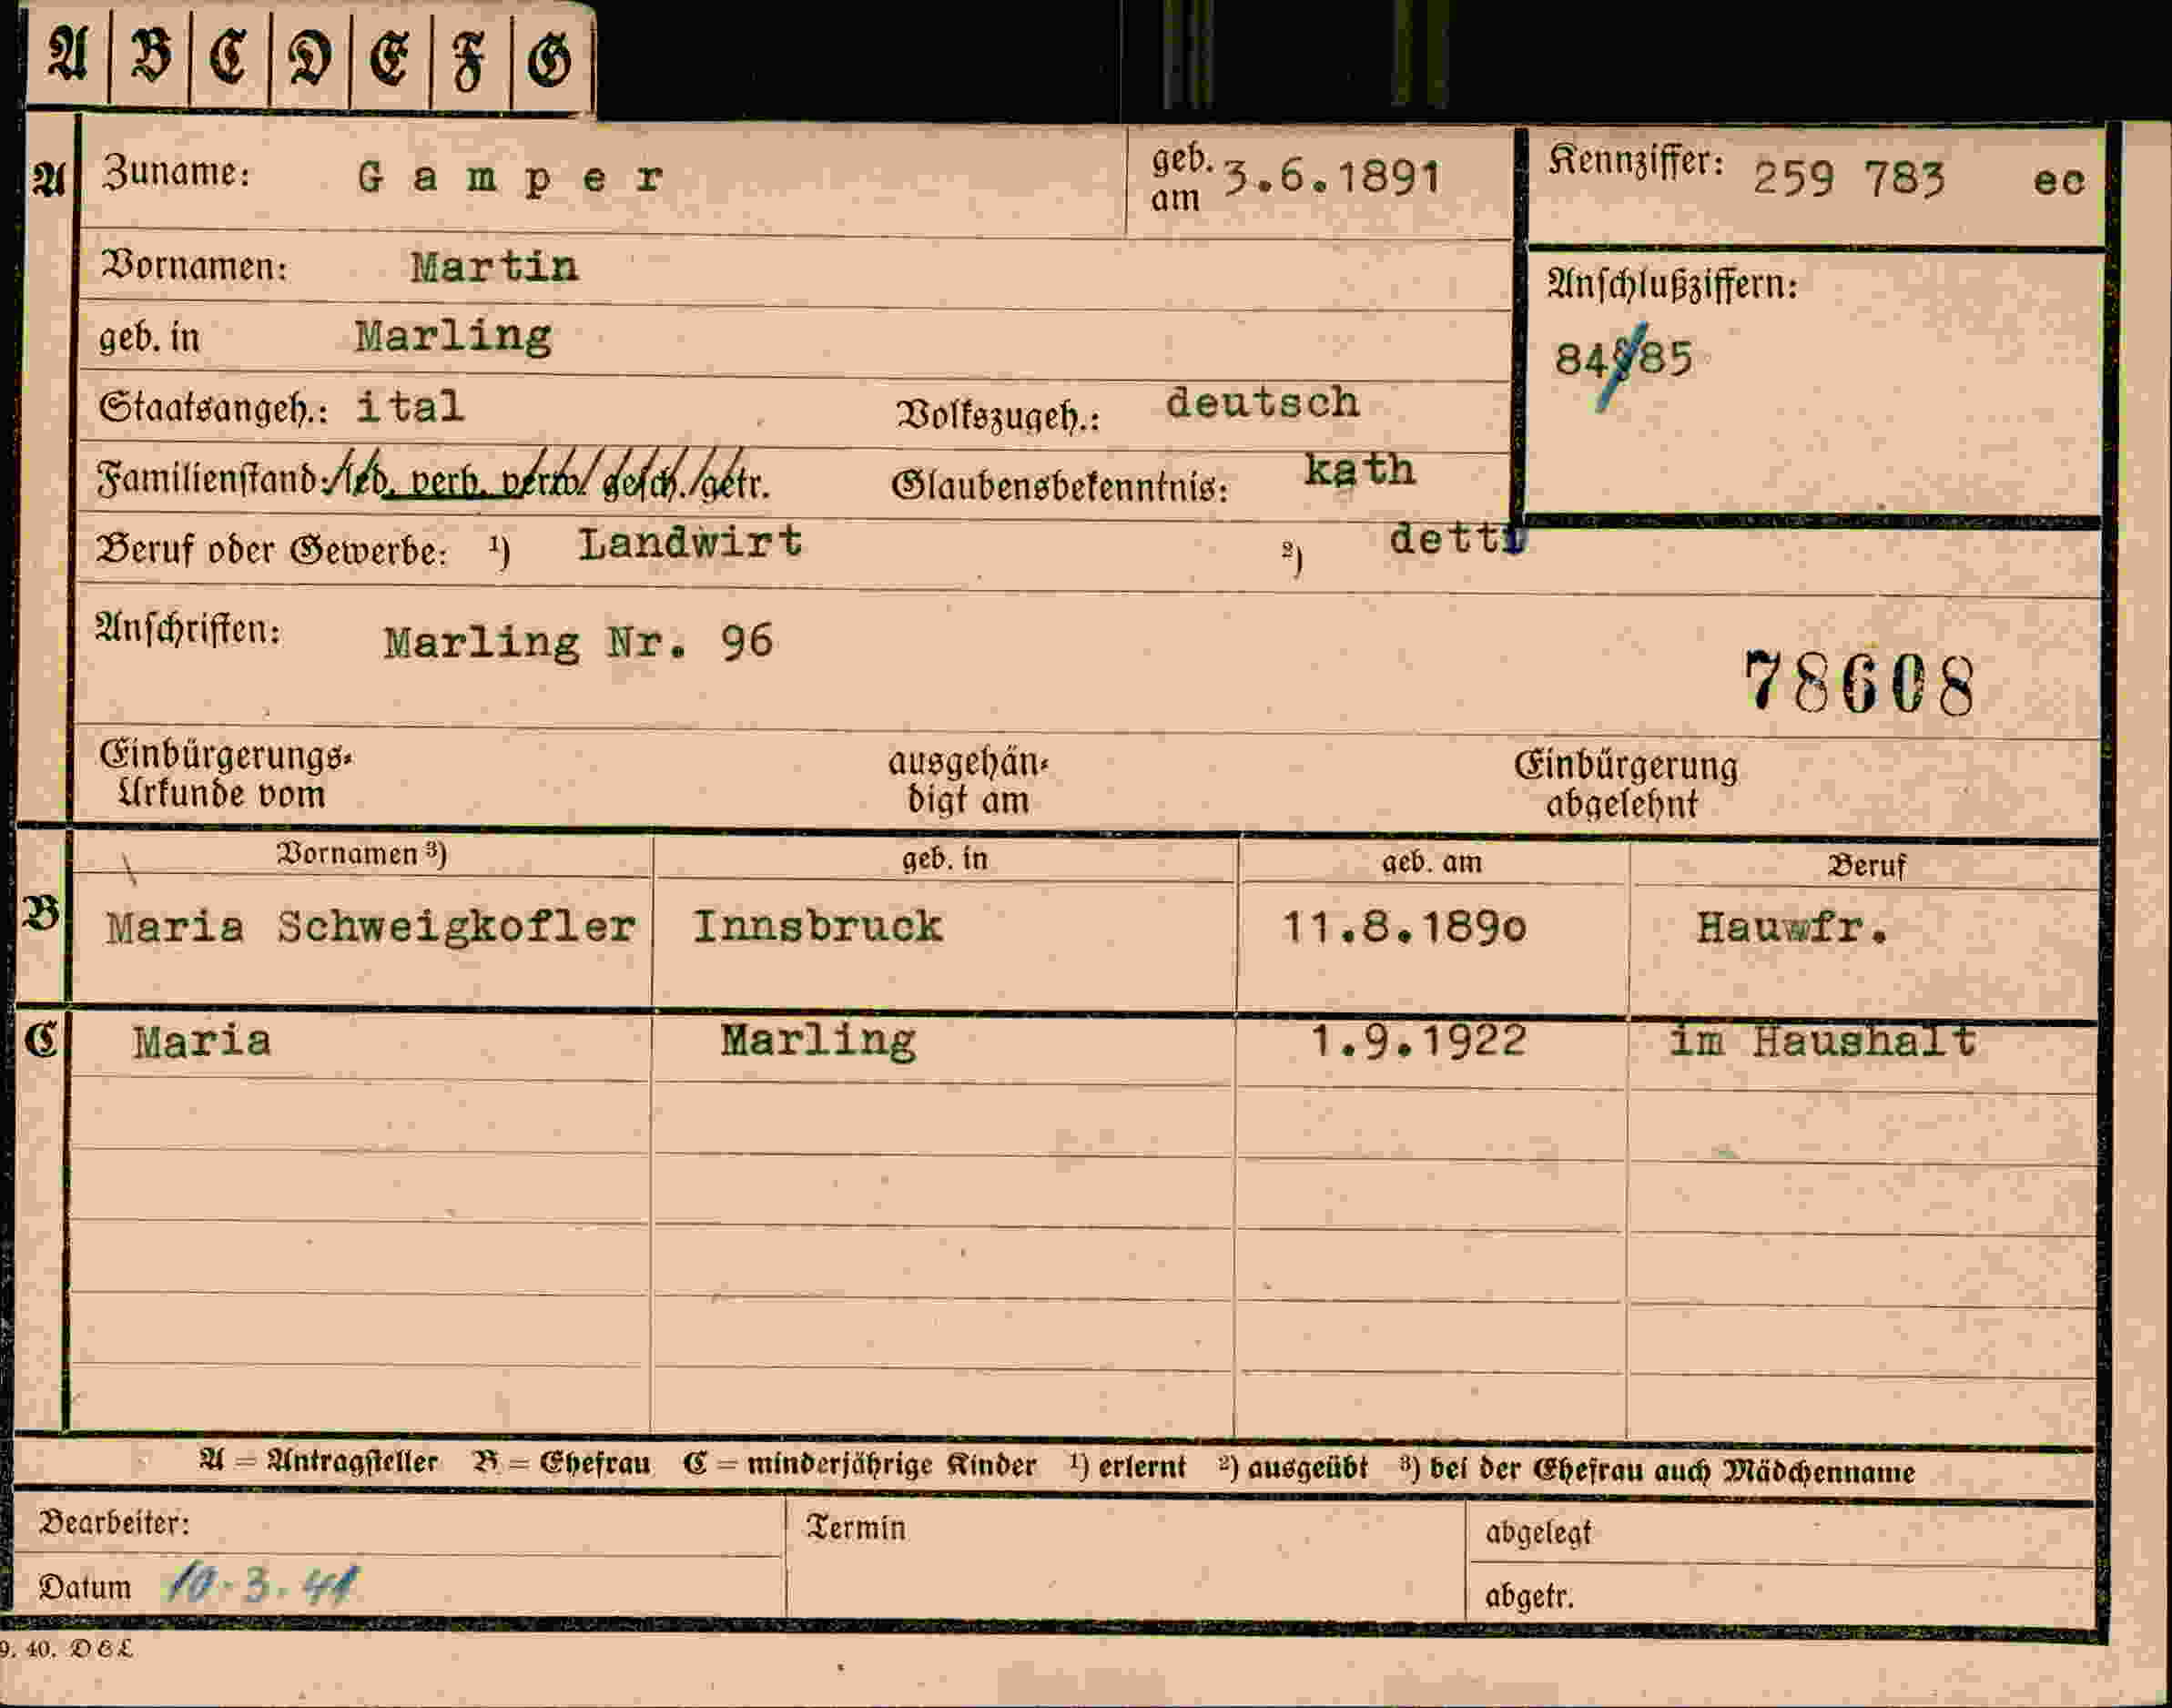 A B C D E F G
A Zuname: Gamper geb. am 3.6.1891 Kennziffer: 259 783 ec
Vornamen: Martin Anschlußziffern:
geb. in Marling 84/85
Staatsangeh.: ital Volkszugeh.: deutsch
Familienstand: led. verh. verw. gesch. getr. Glaubensbekenntnis: kath
Beruf oder Gewerbe: 1) Landwirt 2) detto
Anschriften: Marling Nr. 96
78608
Einbürgerungs- ausgehän- Einbürgerung
Urkunde vom digt am abgelehnt
Vornamen 3) geb. in geb. am Beruf
B Maria Schweigkofler Innsbruck 11.8.1890 Hauwfr.
C Maria Marling 1.9.1922 im Haushalt
A = Antragsteller B = Ehefrau C = minderjährige Kinder 1) erlernt 2) ausgeübt 3) bei der Ehefrau auch Mädchenname
Bearbeiter: Termin abgelegt
Datum 10.3.41 abgetr.
9. 40. DEL